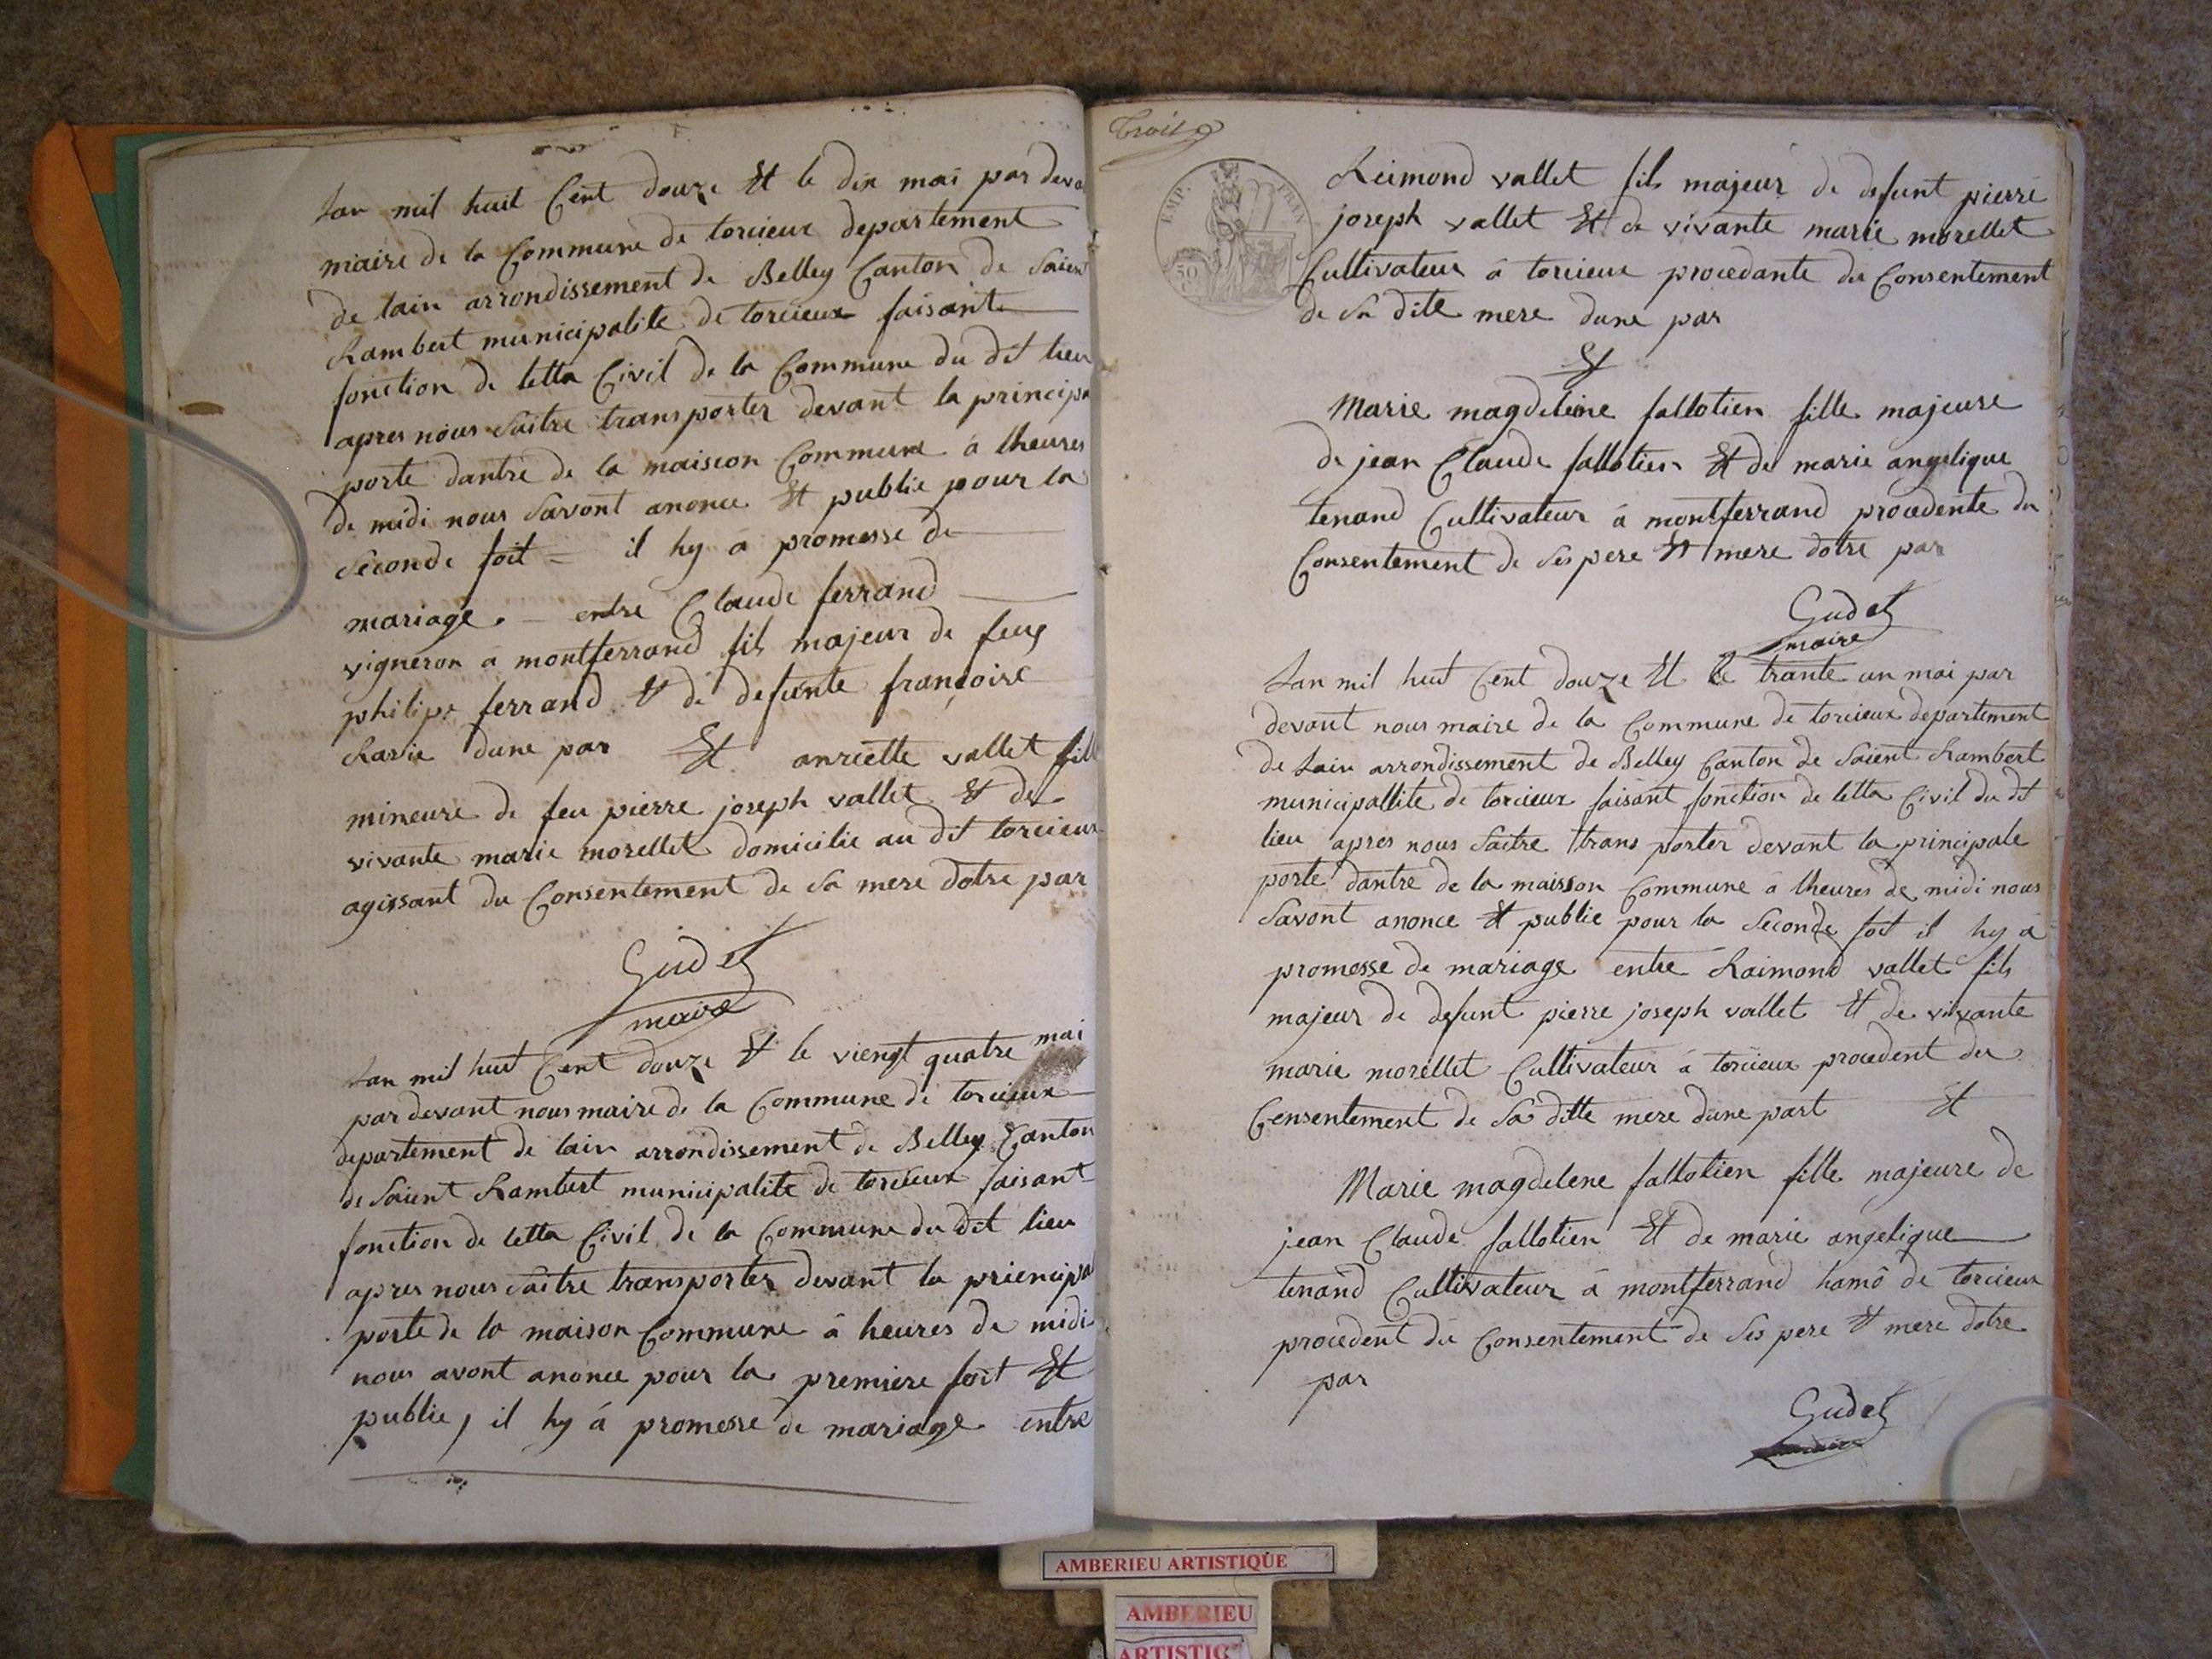 Lan mil huit Cent douze Et le dix mai par deva
maire de la Commune de torcieux departement
de lain arrondissement de Belley Canton de Saient
Rambert municipalite de torcieux faisante
fonction de letta Civil de la Commune du dit lieu
apres nous saitre transporter devant la principa
porte dantre de la maision Commune à lheures
de midi nous Savont anonce Et publie pour la
Seconde foit = il hy à promesse de
mariage. entre Claude ferrand
vigneron à montferrand fils majeur de feug
philipe ferrand Et de defunte françoise
Ravie dune par Et anriette vallet fille
mineure de feu pierre joseph vallet Et de
vivante marie morellet domicilie au dit torcieux
agissant du Consentement de sa mere dotre par
Gudet
maire
Lan mil huit Cent douze Et le viengt quatre mai
par devant nous maire de la Commune de torcieux
departement de lain arrondissement de Belley Canton
de Saient Rambert municipalite de torcieux faisant
fonction de letta Civil de la Commune du dit lieu
apres nous saitre transporter devant la priencipal
porte de la maison Commune à heures de midi
nous avont anonce pour la premiere foit Et
publie, il hy à promesse de mariage entre
Trois
EMP. FRAN
50
Reimond vallet fils majeur de defunt pierre
joseph vallet Et de vivante marie morellet
Cultivateur à torcieux procedante du Consentement
de Sa dite mere dune par
Et
Marie magdeleine fallotien fille majeure
de jean Claude fallotien Et de marie angelique
tenand Cultivateur à montferrand procedente du
Consentement de Ses pere Et mere dotre par
Gudet
maire
Lan mil huit Cent douze Et le trante un mai par
devant nous maire de la Commune de torcieux departement
de Lain arrondissement de Belley Canton de Saient Rambert
municipallite de torcieux faisant fonction de letta Civil du dit
lieu apres nous Saitre trans porter devant la principale
porte dantre de la maisson Commune à lheures de midi nous
Savont anonce Et publie pour la Seconde foit il hy à
promesse de mariage entre Raimond vallet fils
majeur de defunt pierre joseph vallet Et de vivante
marie morellet Cultivateur à torcieux procedent du
Consentement de Sa ditte mere dune part Et
Marie magdelene fallotien fille majeure de
jean Claude fallotien Et de marie angelique
tenand Cultivateur à montferrand hamô de torcieux
procedent du Consentement de Ses pere Et mere dotre
par
Gudet
maire
AMBERIEU ARTISTIQUE
AMBERIEU
ARTISTIQ